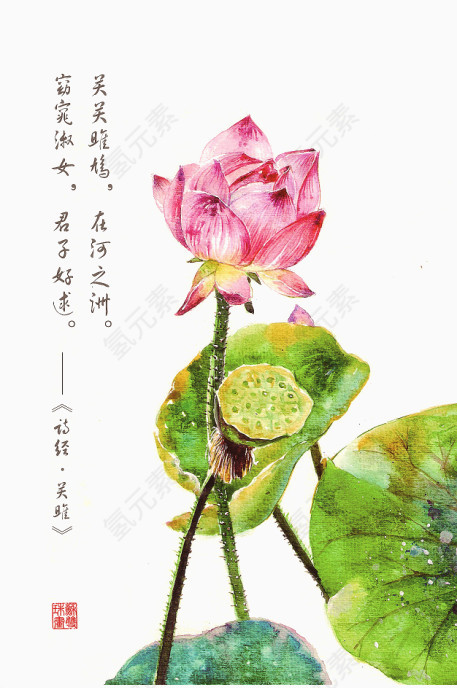 关关雎鸠，在河之洲。
窈窕淑女，君子好逑。
——《诗经·关雎》
氢元素